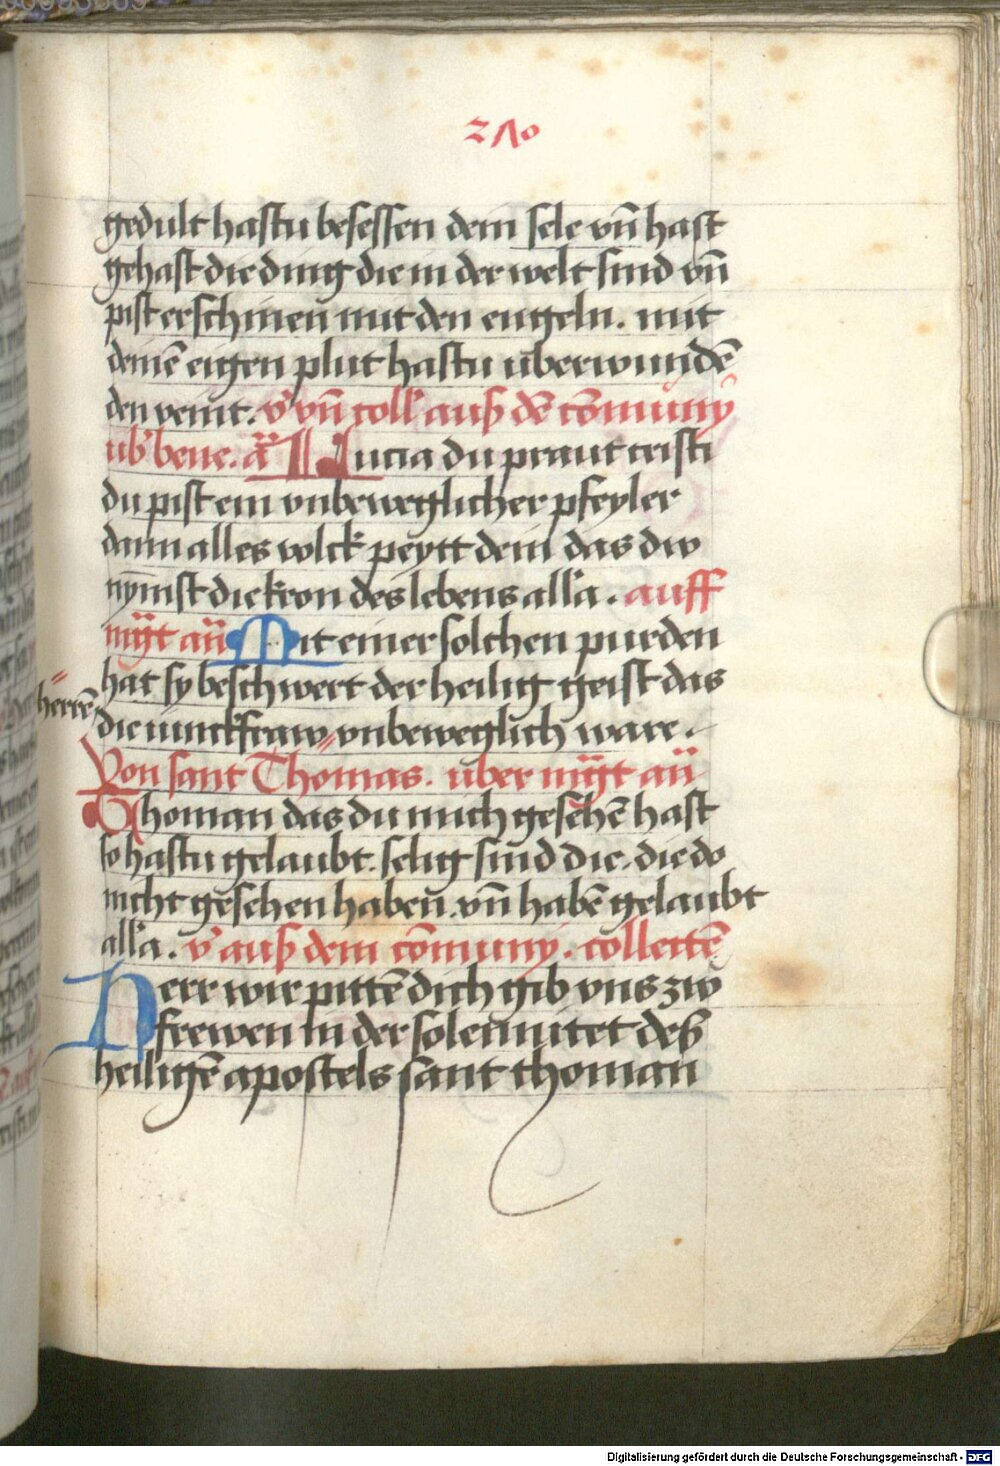 270
gedult hastu besessen dein sele vn̄ hast
gehast die ding die in der welt sind vn̄
pist erschinen mit den engeln. mit
deinē eigen plut hastu überwundē
den veint. v̓ vn̄ coll̓ auß dē cōmuny
ub̓ bene. a᷑ Lucia du praut cristi
du pist ein vnbeweglicher pfeyler
dann alles volck peytt dein das dw
nymst die kron des lebens all̓a. auff
mg̈t an̄ Mit einer solchen purden
hat sy beschwert der heilig geist das
herrē
die iunckfraw〃vnbeweglich ware.
Von sant Thomas. über mg̈t an̄
Thoman das du mich gesehē hast
so hastu gelaubt. selig sind die. die do
nicht gesehen haben̄. vn̄ habē gelaubt
all̓a. v̓ auß dem cōmuny. collectē
Herr wir pittē dich gib vns zw
frewen in der solennitet deß
heiligē apostels sant thoman
Digitalisierung gefördert durch die Deutsche Forschungsgemeinschaft - DFG